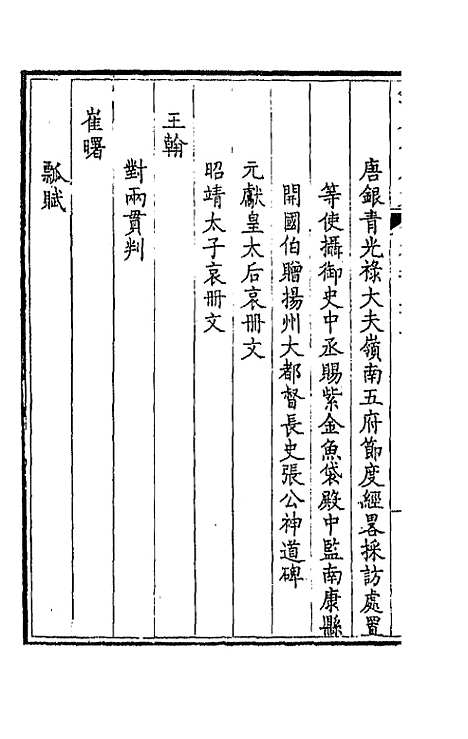 唐銀青光祿大夫嶺南五府節度經畧採訪處置
等使攝御史中丞賜紫金魚袋殿中監南康縣
開國伯贈揚州大都督長史張公神道碑
元獻皇太后哀冊文
昭靖太子哀冊文
王翰
對兩貫判
崔曙
瓢賦